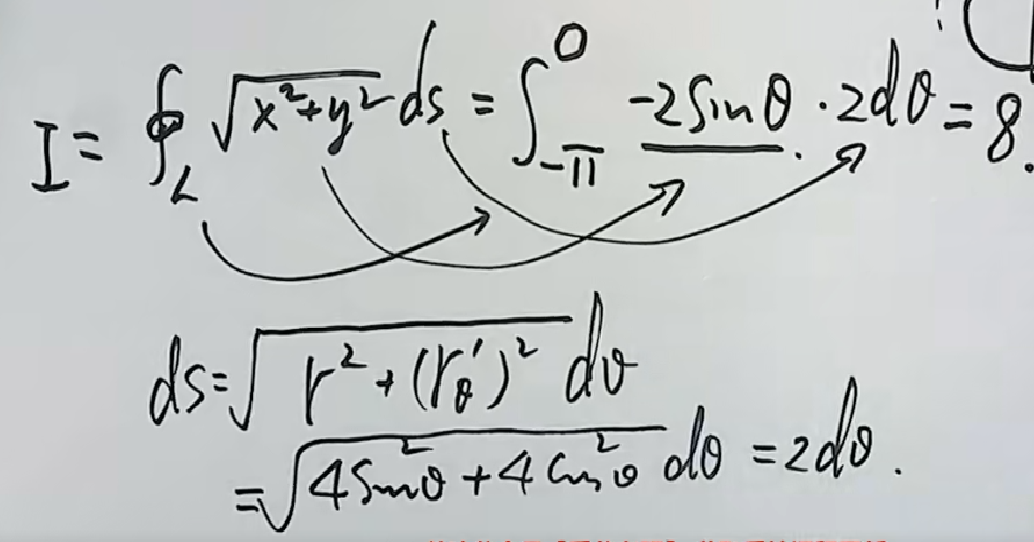 I = ∮_L √(x²+y²) ds = ∫_{-π}^{0} -2sinθ · 2dθ = 8.
ds = √(r² + (r'_θ)²) dθ
= √(4sin²θ + 4cos²θ) dθ = 2dθ.